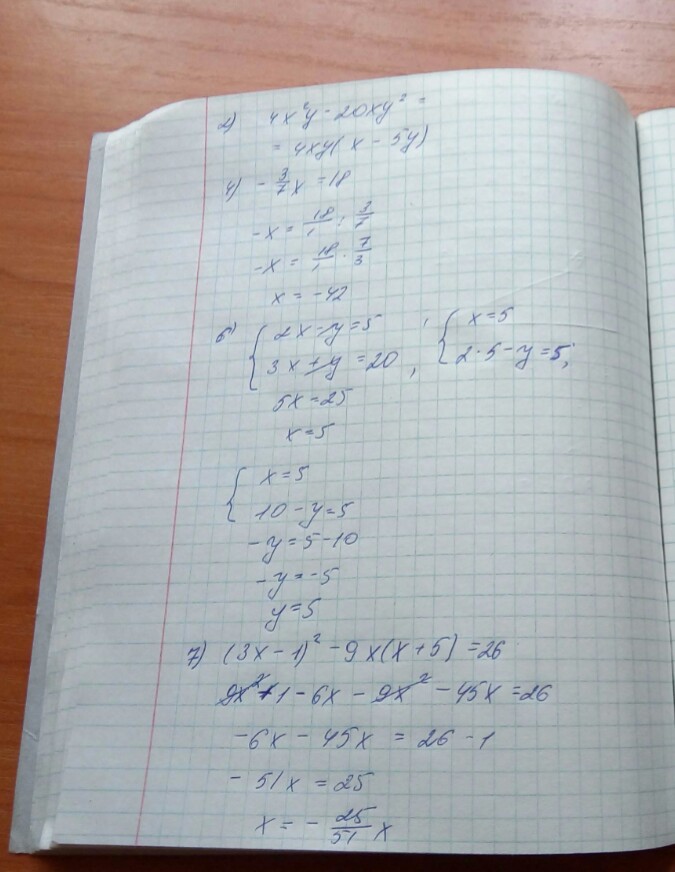 2) 4x²y - 20xy² =
= 4xy(x - 5y)
4) - 3/7 x = 18
-x = 18/1 : 3/7
-x = 18/1 · 7/3
x = -42
6) { 2x - y = 5 , { x = 5
3x + y = 20 , 2·5 - y = 5;
5x = 25
x = 5
{ x = 5
10 - y = 5
-y = 5 - 10
-y = -5
y = 5
7) (3x - 1)² - 9x(x + 5) = 26
9x² + 1 - 6x - 9x² - 45x = 26
-6x - 45x = 26 - 1
- 51x = 25
x = - 25/51 x